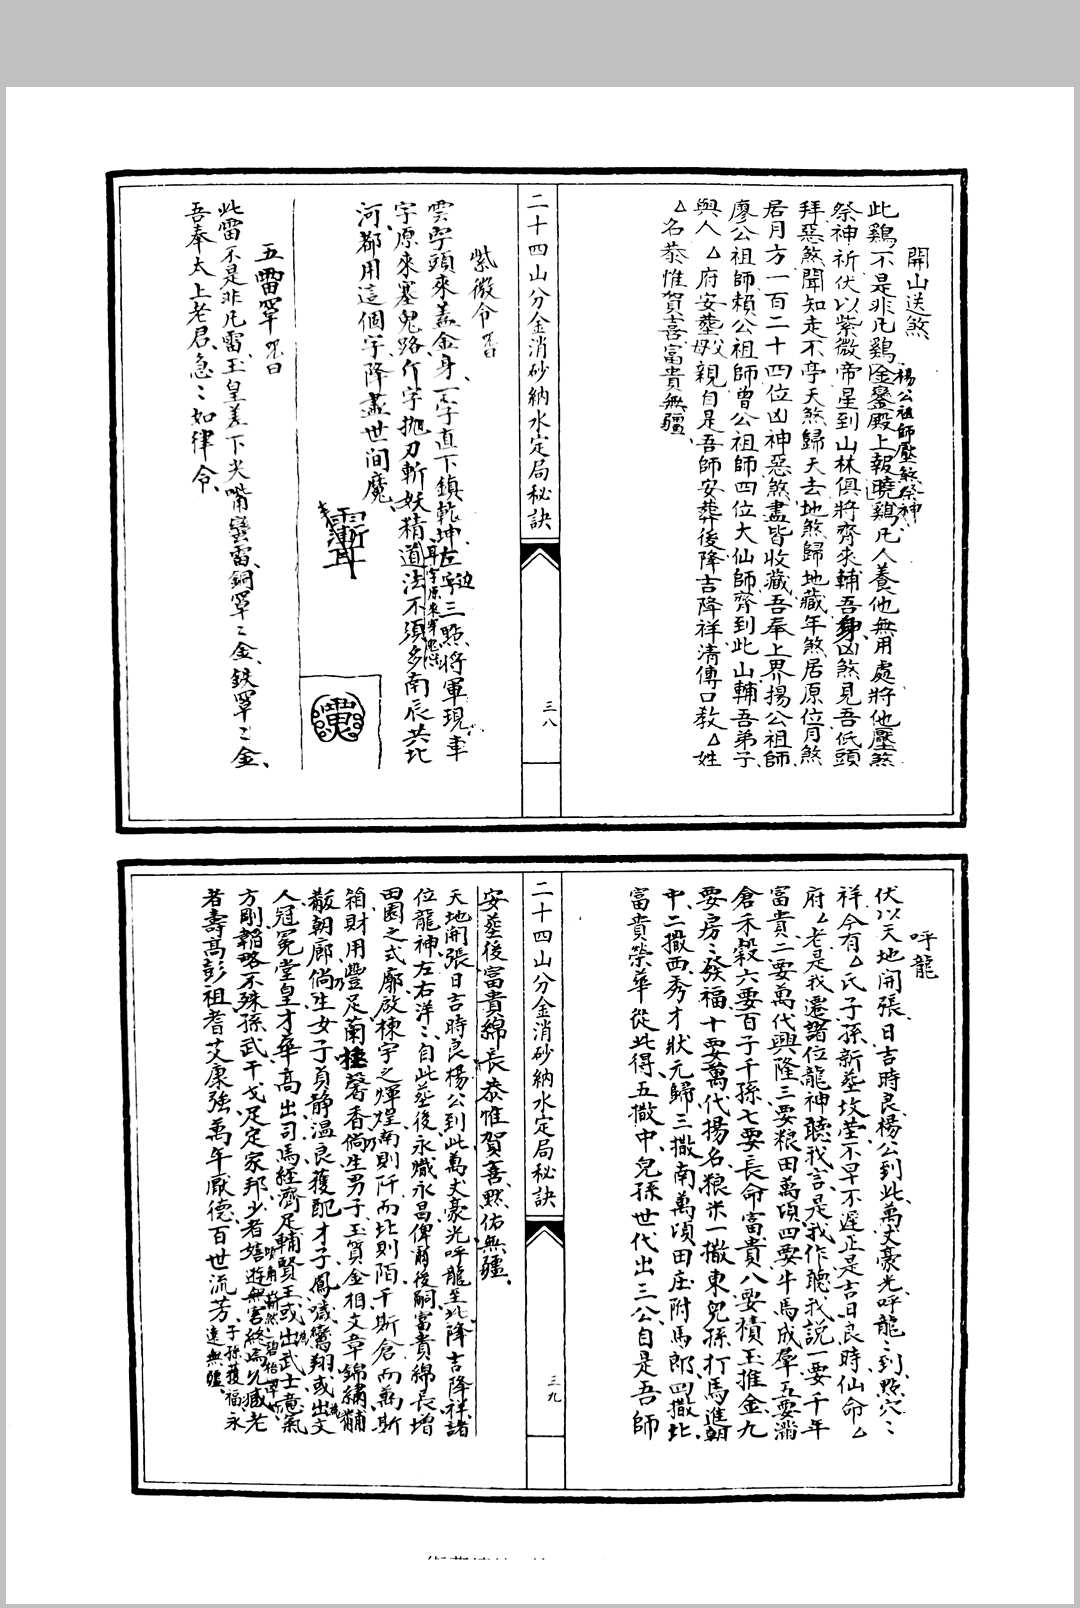 開山送煞
楊公祖師壓煞祭神
此鷄不是非凡鷄金鑾殿上報曉鷄凡人養他無用處將他壓煞
祭神祈伏以紫微帝星到山林俱將齊來輔吾身凶煞見吾低頭
拜惡煞聞知走不停天煞歸天去地煞歸地藏年煞居原位月煞
居月方一百二十四位凶神惡煞盡皆收藏吾奉上界揚公祖師
廖公祖師賴公祖師曾公祖師四位大仙師齊到此山輔吾弟子
與人△府安塋母父親自是吾師安葬後降吉降祥清傳口教△姓
△名恭惟賀喜富貴無疆
二十四山分金消砂納水定局秘訣
三八
紫微令 咒曰
雲字頭來蓋金身 字直下鎮乾坤左边字三點將軍現車
字原來塞鬼路斤字拋刀斬妖精道法不須多南辰共北
河都用這個字降盡世间魔
五雷罩 咒曰
此雷不是非凡雷玉皇差下尖嘴蛮雷銅罩〻金鉄罩〻金
吾奉太上老君急〻如律令
呼龍
伏以天地開張日吉時良楊公到此萬丈豪光呼龍〻到點穴〻
祥今有△氏子孫新塋坟塋不早不遲正是吉日良時仙命△
府△老是我遷諸位龍神聽我言是我作聽我說一要千年
富貴二要萬代興隆三要粮田萬頃四要牛馬成羣五要滿
倉禾穀六要百子千孫七要長命富貴八要積玉推金九
要房〻發福十要萬代揚名粮米一撒東兒孫打馬進朝
中二撒西秀才狀元歸三撒南萬頃田庄附馬郎四撒北
富貴榮華從此得五撒中兒孫世代出三公自是吾師
二十四山分金消砂納水定局秘訣
三九
安塋後富貴綿長恭惟賀喜默佑無疆
天地開張日吉時良楊公到此萬丈豪光呼龍至此降吉降祥諸
位龍神左右洋〻自此塋後永熾永昌俾爾後嗣富貴綿長增
田園之式廓啟棟宇之輝煌南則阡而北則陌千斯倉而萬斯
箱財用豐足蘭桂馨香倘乃生男子玉質金相文章錦繡黼
黻朝廊倘乃生女子貞靜温良獲配才子鳳鳴鸞翔或出文
人冠冕堂皇才華高出司馬經濟足輔賢王或出武士竟氣
方剛韜略不殊孫武干戈足定家邦少者嬉遊無害終焉允臧老
者壽高彭祖耆艾康強萬年厥德百世流芳子孫獲福永
遠無疆